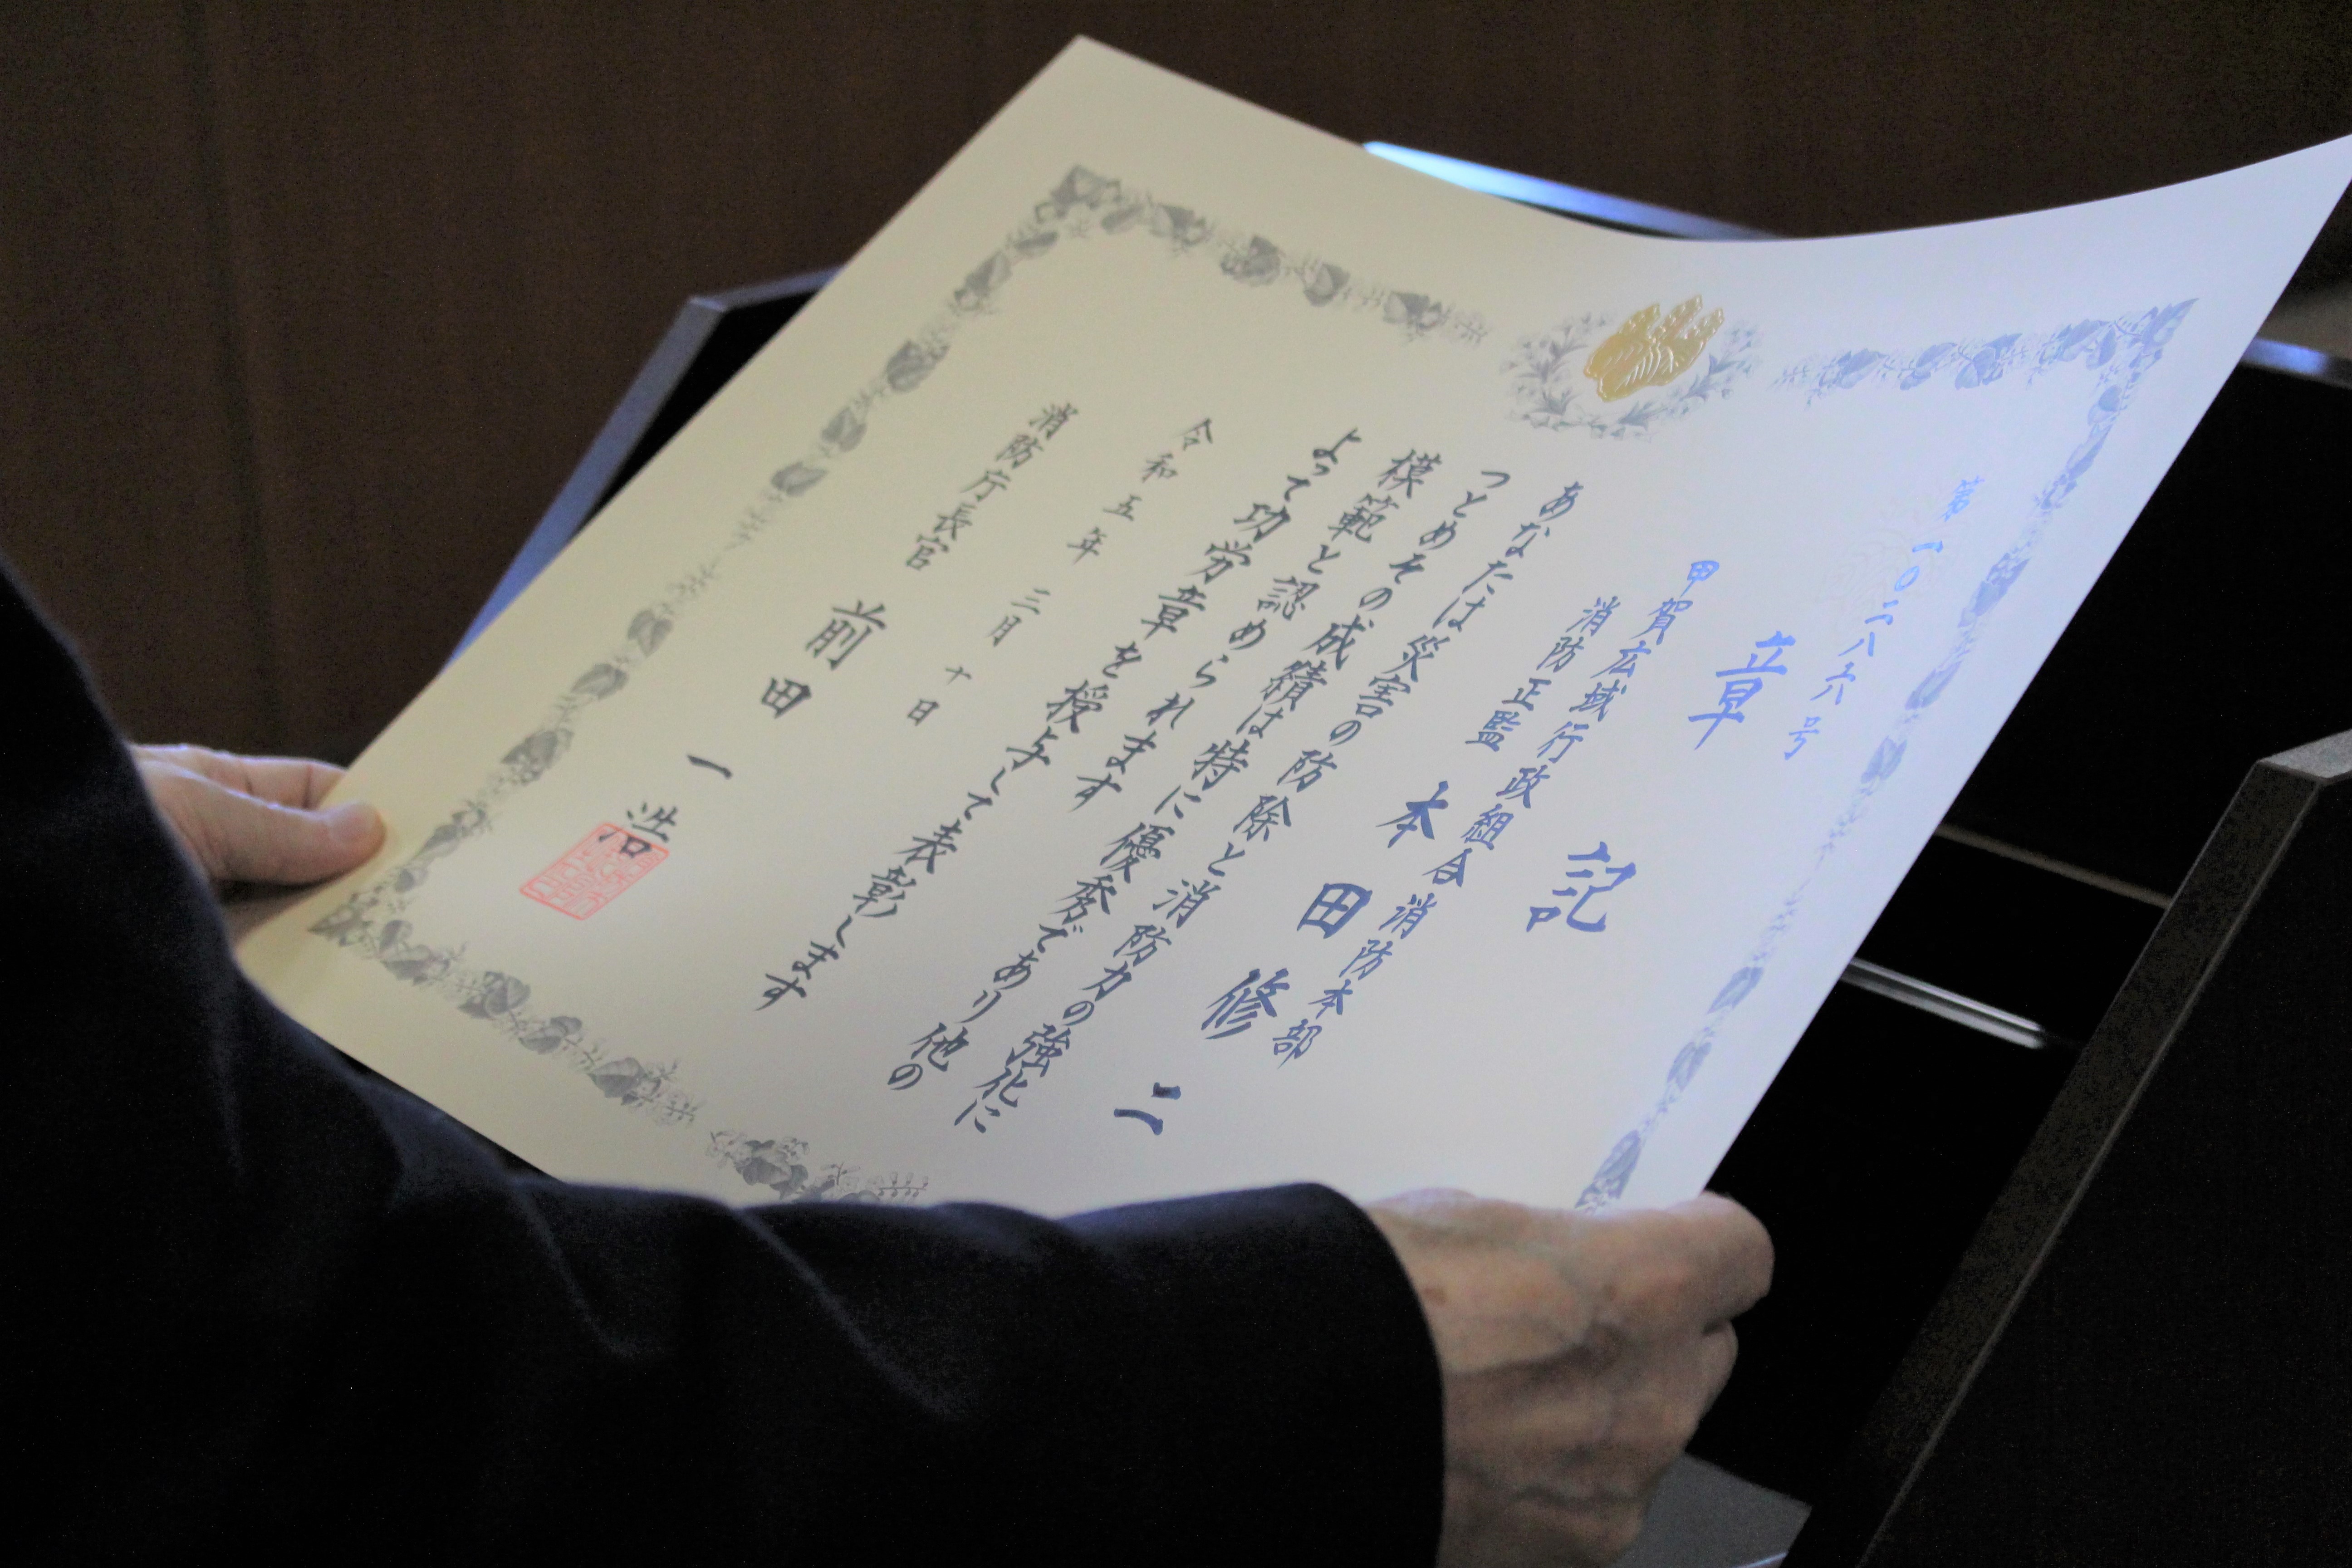 第一〇二八六号
章記
甲賀広域行政組合消防本部
消防正監 本田修二
あなたは災害の防除と消防力の強化に
つとめその成績は特に優秀であり他の
模範と認められます
よって功労章を授与して表彰します
令和五年三月十日
消防庁長官 前田一浩